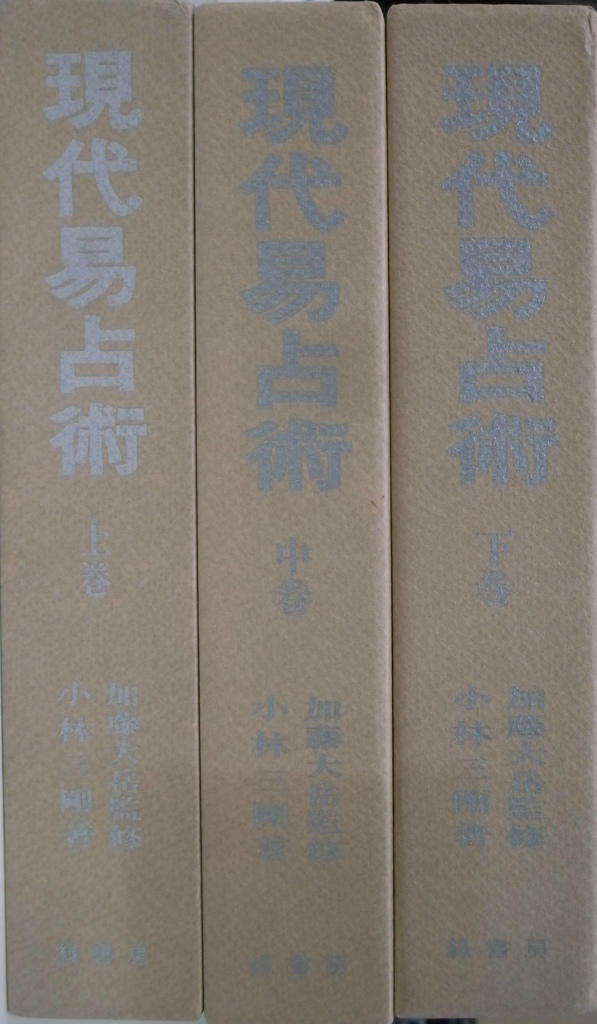 現代易占術
上巻
加藤大岳監修
小林三剛著
緑書房
現代易占術
中巻
加藤大岳監修
小林三剛著
緑書房
現代易占術
下巻
加藤大岳監修
小林三剛著
緑書房